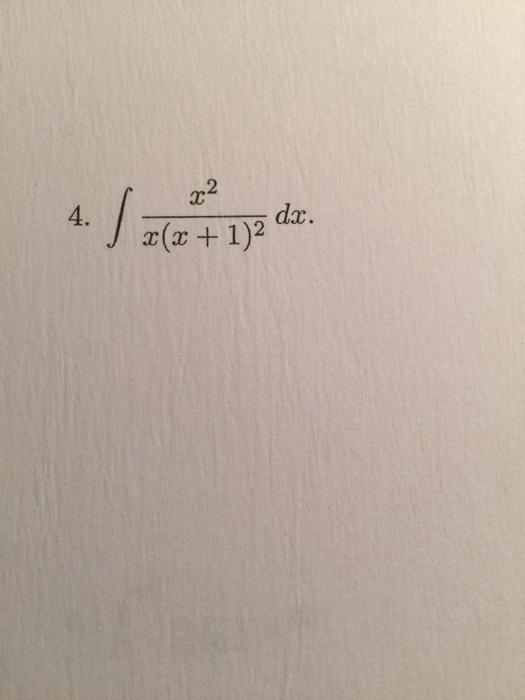 4. ∫ x² / x(x + 1)² dx.